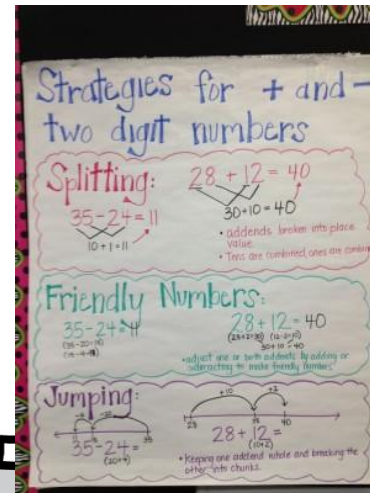 Strategies for + and -
two digit numbers
Splitting:
35-24=11
10+1=11
28 + 12 = 40
30+10=40
• addends broken into place
value.
• Tens are combined, ones are
Friendly Numbers:
35-24=11
(35-20=15)
28+12=40
(28+2=30) (12-2=10)
30+10=40
•adjust one or both addends by adding or
subtracting to make friendly numbers.
Jumping:
35
35-24=
(20+4)
+10 +2
28 38 40
28+12=
(10+2)
•Keeping one addend whole and breaking the
other into chunks.